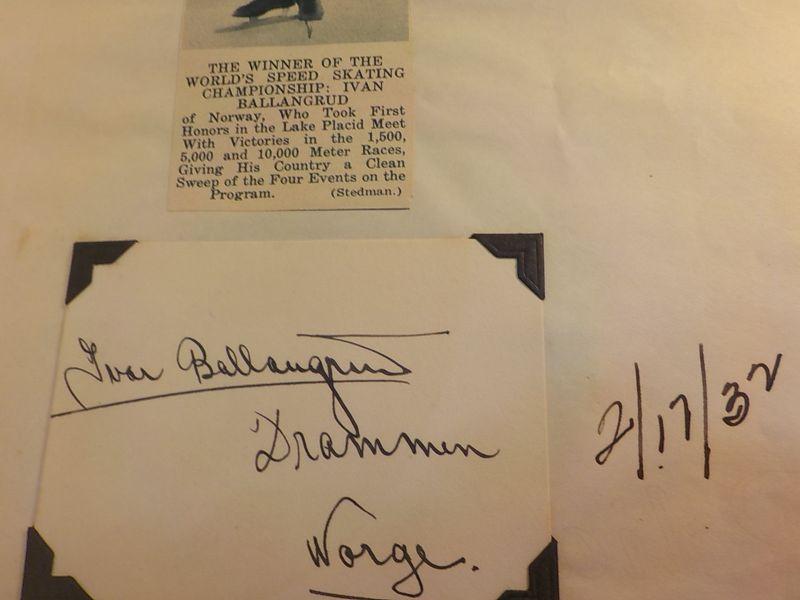 THE WINNER OF THE
WORLD'S SPEED SKATING
CHAMPIONSHIP: IVAN
BALLANGRUD
of Norway, Who Took First
Honors in the Lake Placid Meet
With Victories in the 1,500,
5,000 and 10,000 Meter Races,
Giving His Country a Clean
Sweep of the Four Events on the
Program. (Stedman.)
Ivar Ballangrud
Drammen
Norge.
2/17/32